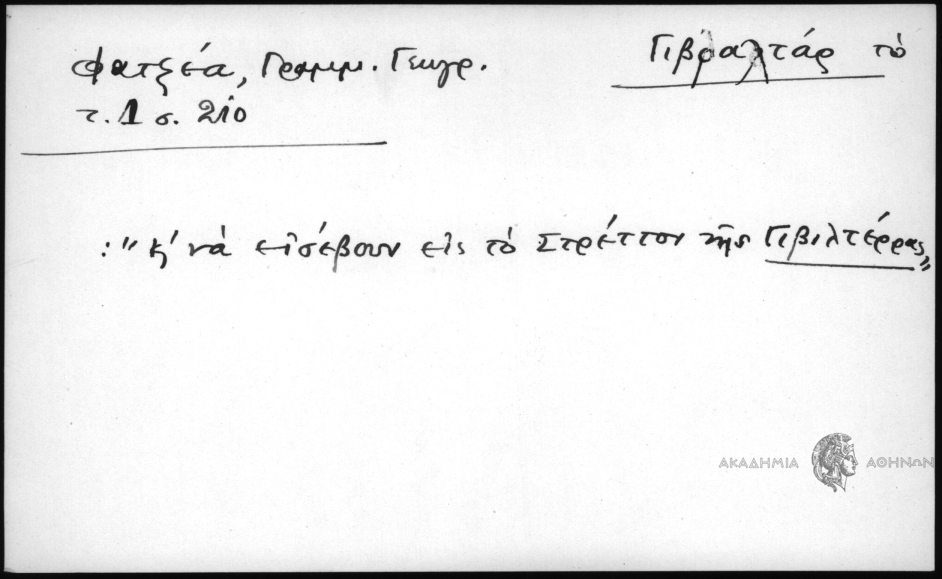 Φατζέα, Γραμμ. Γεωγρ.
τ. 1 σ. 210
Γιβραλτάρ τὸ
: " κ' νὰ εἰσέβουν εἰς τὸ Στρέττον τῆς Γιβιλτέρρας "
ΑΚΑΔΗΜΙΑ ΑΘΗΝΩΝ